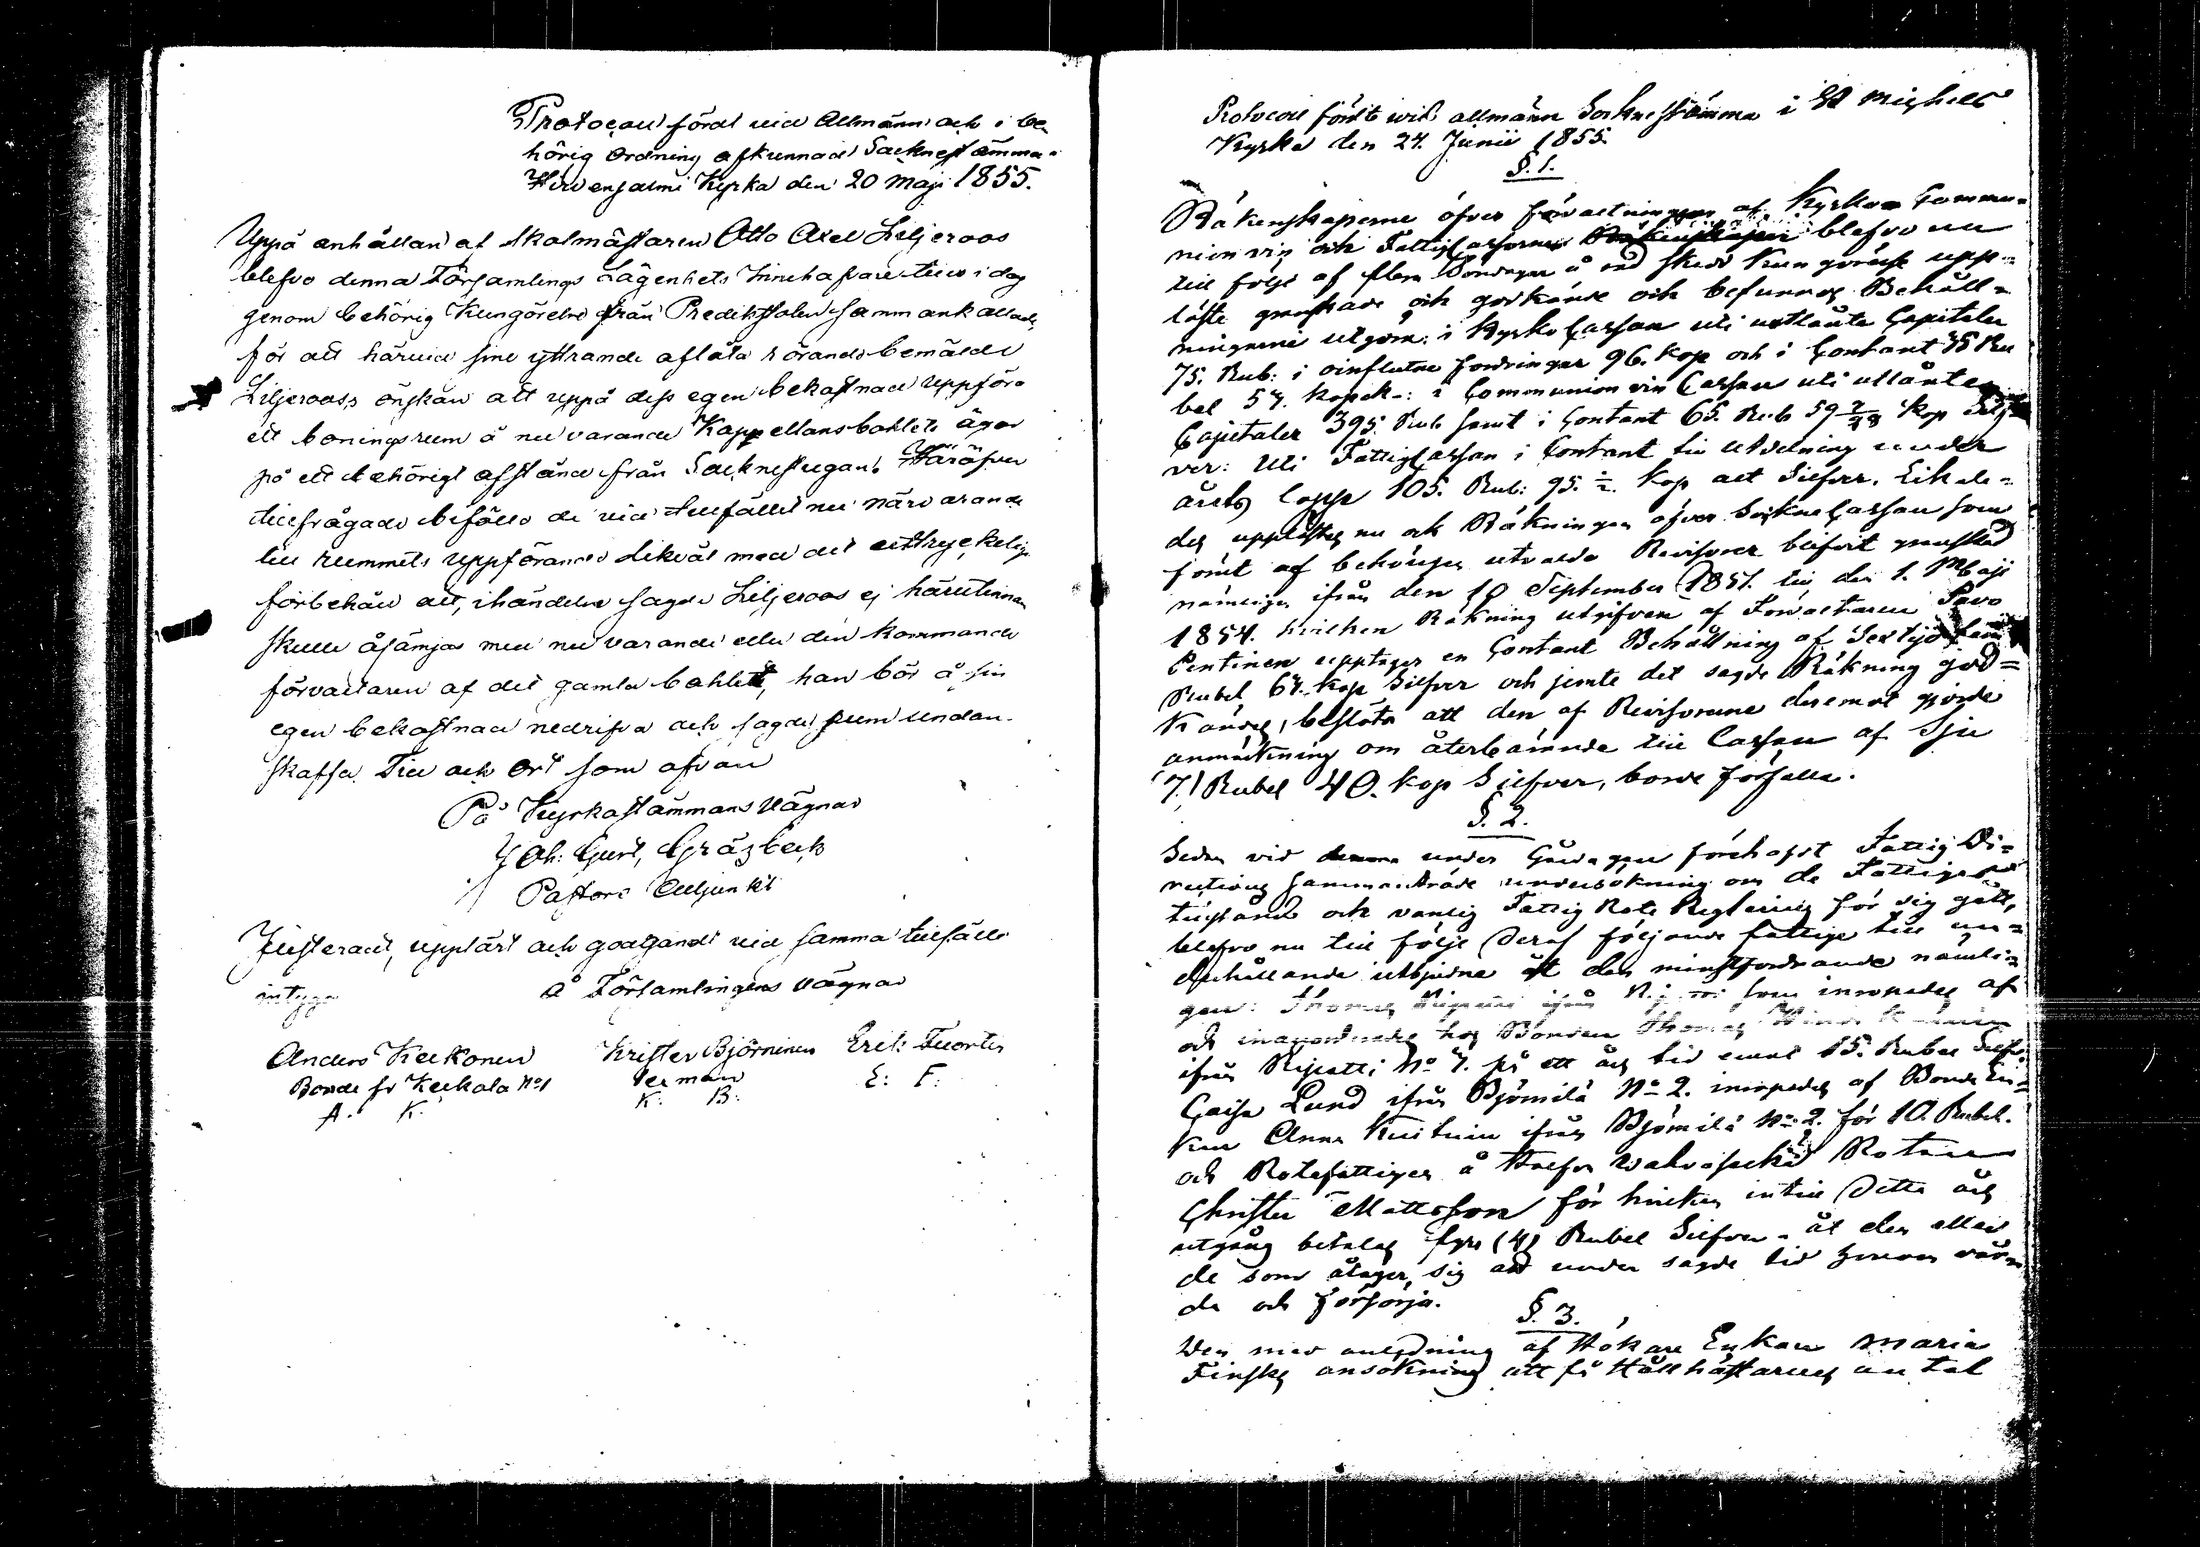 Protocoll fördt vid Allmänn och i be-
hörig Ordning afkunnad Sacknestämma i
Hirvensalmi Kyrka den 20 Maji 1855.
Uppå anhållan af Skolmästaren Otto Axel Liljeroos
blefvo denna Församlings Lägenhets Innehafvare till i dag
genom behörig Kungörelse från Predikstolen sammankallade,
för att härvid sine yttrande aflåta rörande bemälde
Liljerooss önskan att uppå dess egen bekostnad uppföra
ett boningsrum å nu varande Kappellansbohlets ägor
på ett behörigt afstånd från Sacknestugan. Häröfver
tillfrågade biföllo de vid tillfället nu närvarande
till rummets uppförande likväl med det uttryckelige
förbehåll att, ihändelse sagde Liljeroos ej härutinnan
skulle åsämjas med nu varande eller den kommande
förvaltaren af det gamla bohlet, han bör å sin
egen bekostnad nedrifva och sagde rum undan-
skaffa. Tid och Ort som ofvan
På Kyrkostämmans Vägnar
Joh: Gust, Gräsbeck
Pastors Adjunkt
Justerad, uppläst och godtändt vid samma tillfälle
intyga
å Församlingens Vägnar
Anders Keckonen Krister Björninen Erik Tuortis
Bonde fr Keckola No 1
A. K. K. B. E: F:
Protocoll fördt wid allmänn Sockne stämma i St Michels
Kyrka den 24. Junii 1855.
§. 1.
Räkenskaperne öfver förvaltningen af Kyrko Commu-
nion vin och Fattig Cassorne blefvo nu
till följe af flere Söndagar å rad skedd Kungörelse upp-
läste granskade och godkände och befunnos Behåll-
ningarne utgöra: i Kyrko Cassan uti utlånta Capitaler
75. Rub: i oinflutne fordringar 96. Kop och i Contant 75 Ru
bel 57. Kopek: i Communion vin Cassan uti utlånte
Capitaler 395. Rub samt i Contant 65. Rub 59 Kop Silf
ver: Uti Fattig Cassan i Contant till utdelning under
årets lopp 105. Rub: 95. ½ Kop allt Silfver. Likale-
des upplästes nu ock Räkningen öfver Sockne Cassan som
somt af behörigen utvalde Revisorer blifvit granskad
nämligen ifrån den 10 September 1851. till den 1. Maji
1854. hvilken Räkning utgifven af Förvaltaren Pavo
Pentinen upptager en Contant Behållning af Sextio fem
Rubel 67. Kop Silfver och jemte det sagde Räkning god-
kändes, beslöts att den af Revisorerne deremot gjorde
anmärkning om återbärande till Cassan af Sju
(7.) Rubel 40. Kop Silfver, borde förfalla.
§. 2.
Sedan vid under Gårdagen förehafd Fattig Di-
rections sammanträde undersökning om de Fattigas
tillstånd och vanlig Fattig Rote Reglering för sig gått,
blefvo nu till följe deraf följande fattige till un-
derhållande utbjudne åt den minstfordrande nämli-
gen: Thomas ifrån som inropades af
och inaccorderades hos Bonden Thomas
ifrån Ripatti No 7. på ett års tid emot 15. Rubel Silfv.
Caisa Lund ifrån Björnilä No 2. inropades af Bonde En-
kan Anna Kuitunen ifrån Björnilä No 2. för 10. Rubel.
och Rotefattigen å Rotens
Christer Mattsson för hvilken intill detta års
utgång betalas fyra (4) Rubel Silfver åt den eller
de som åtager sig att under sagde tid honom vår-
da och försörja.
§. 3.
Den med anledning af Hökare Enkan Maria
Finskes ansökning att få Hållhästarnes antal